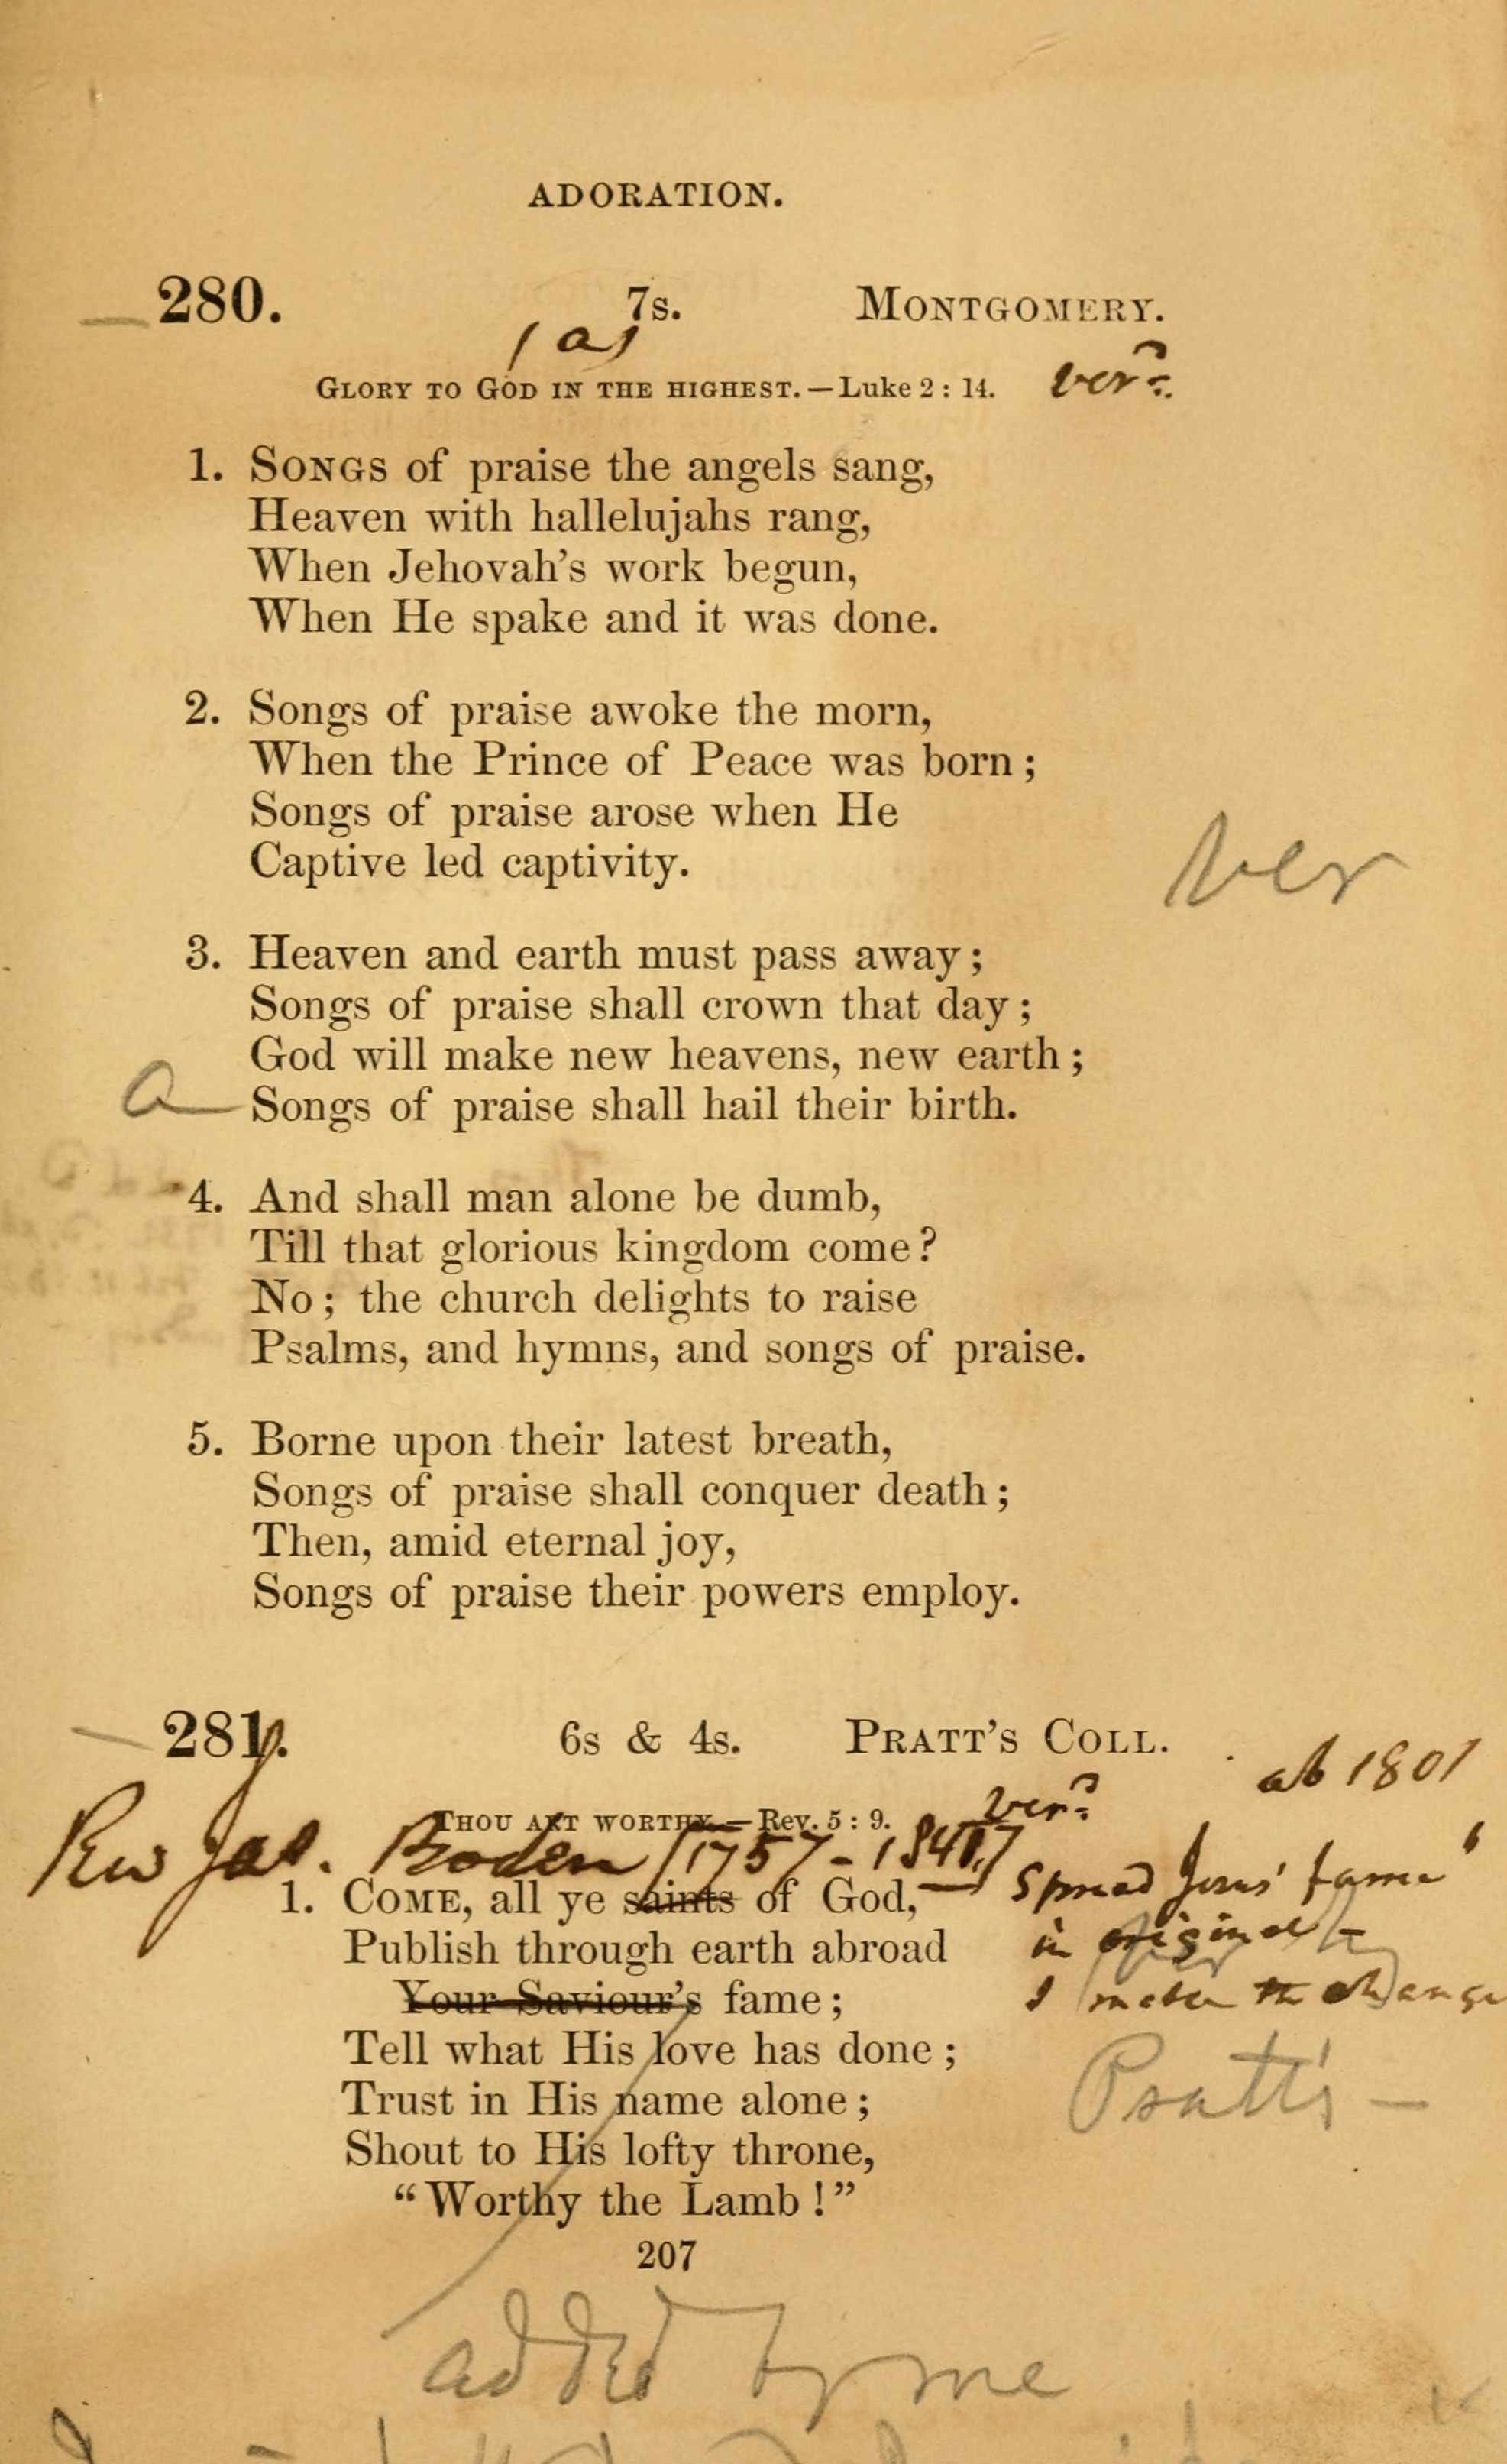 ADORATION.
280. 7s. MONTGOMERY.
(a)
GLORY TO GOD IN THE HIGHEST.—Luke 2 : 14. ver?
1. SONGS of praise the angels sang,
Heaven with hallelujahs rang,
When Jehovah's work begun,
When He spake and it was done.
2. Songs of praise awoke the morn,
When the Prince of Peace was born;
Songs of praise arose when He
Captive led captivity.
ver
3. Heaven and earth must pass away;
Songs of praise shall crown that day;
God will make new heavens, new earth;
a Songs of praise shall hail their birth.
4. And shall man alone be dumb,
Till that glorious kingdom come?
No; the church delights to raise
Psalms, and hymns, and songs of praise.
5. Borne upon their latest breath,
Songs of praise shall conquer death;
Then, amid eternal joy,
Songs of praise their powers employ.
281. 6s & 4s. PRATT'S COLL.
ab 1801
THOU ART WORTHY.—Rev. 5 : 9. ver?
Rev Jas. Boden (1757-1841)
1. COME, all ye saints of God, Spread Jesus' fame"
Publish through earth abroad in original
Your Saviour's fame; change
Tell what His love has done;
Pratt's —
Trust in His name alone;
Shout to His lofty throne,
"Worthy the Lamb!"
207
added by me